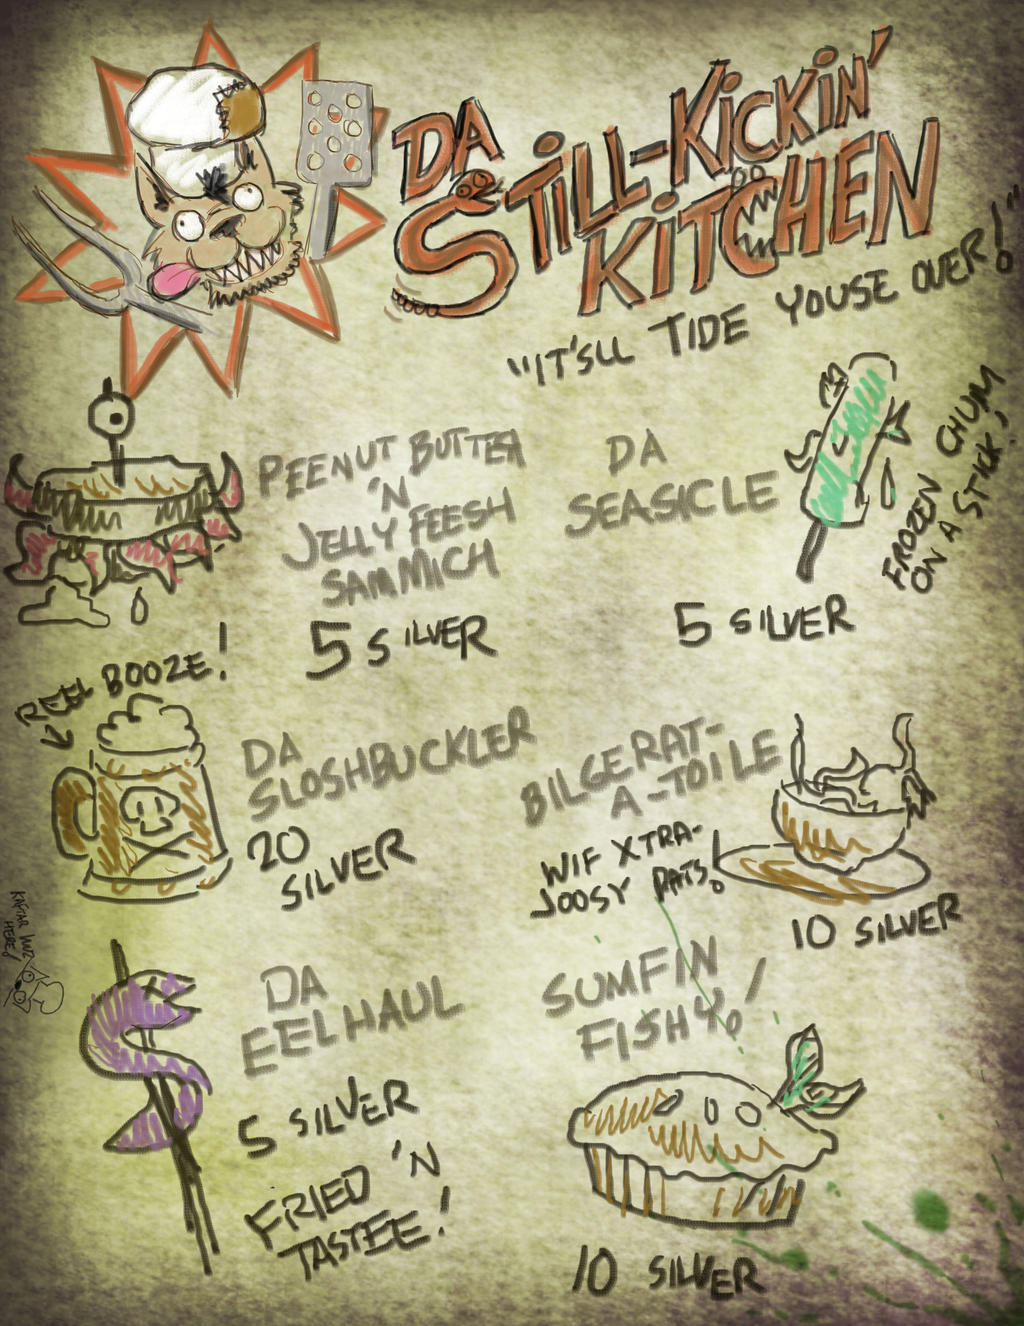 DA
STILL-KICKIN'
KITCHEN
"IT'SLL TIDE YOUSE OVER!"
PEENUT BUTTER
'N
JELLY FEESH
SAMMICH
5 SILVER
DA
SEASICLE
FROZEN CHUM
ON A STICK!
5 SILVER
REEL BOOZE!
DA
SLOSHBUCKLER
20
SILVER
BILGERAT-
A-TOILE
WIF XTRA-
JOOSY RATS!
10 SILVER
KAFTAR WUZ
HERE!
DA
EELHAUL
5 SILVER
FRIED 'N
TASTEE!
SUMFIN
FISHY!
10 SILVER